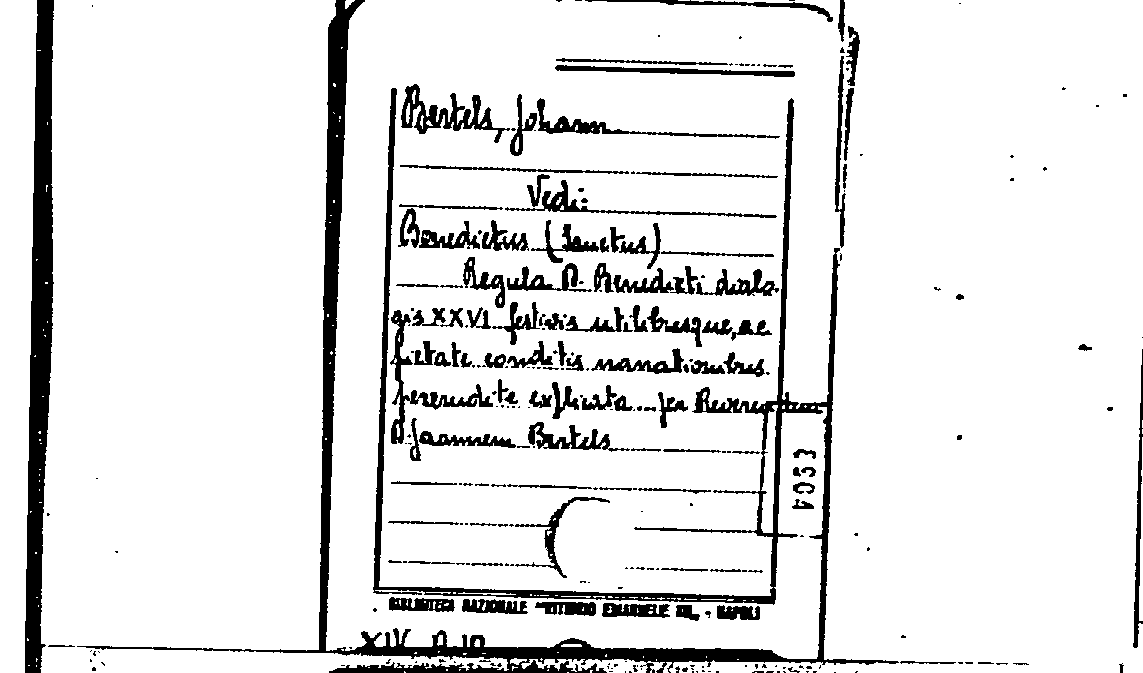 Bertels, Johann
Vedi:
Benedictus (Sanctus)
Regula D. Benedicti dialo-
gis XXVI festivis utilibusque, ac
pietate conditis narrationibus
pererudite explicata... per Reverendum
D. Joannem Bertels
BIBLIOTECA NAZIONALE "VITTORIO EMANUELE III" - NAPOLI
XIV